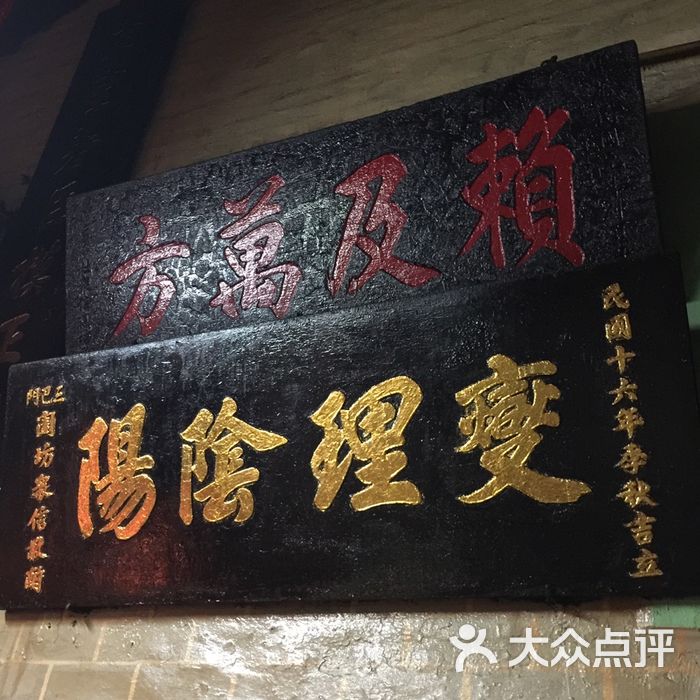 賴及萬方
民國十六年季秋吉立
燮理陰陽
三巴門
闔坊眾信敬酬
大众点评